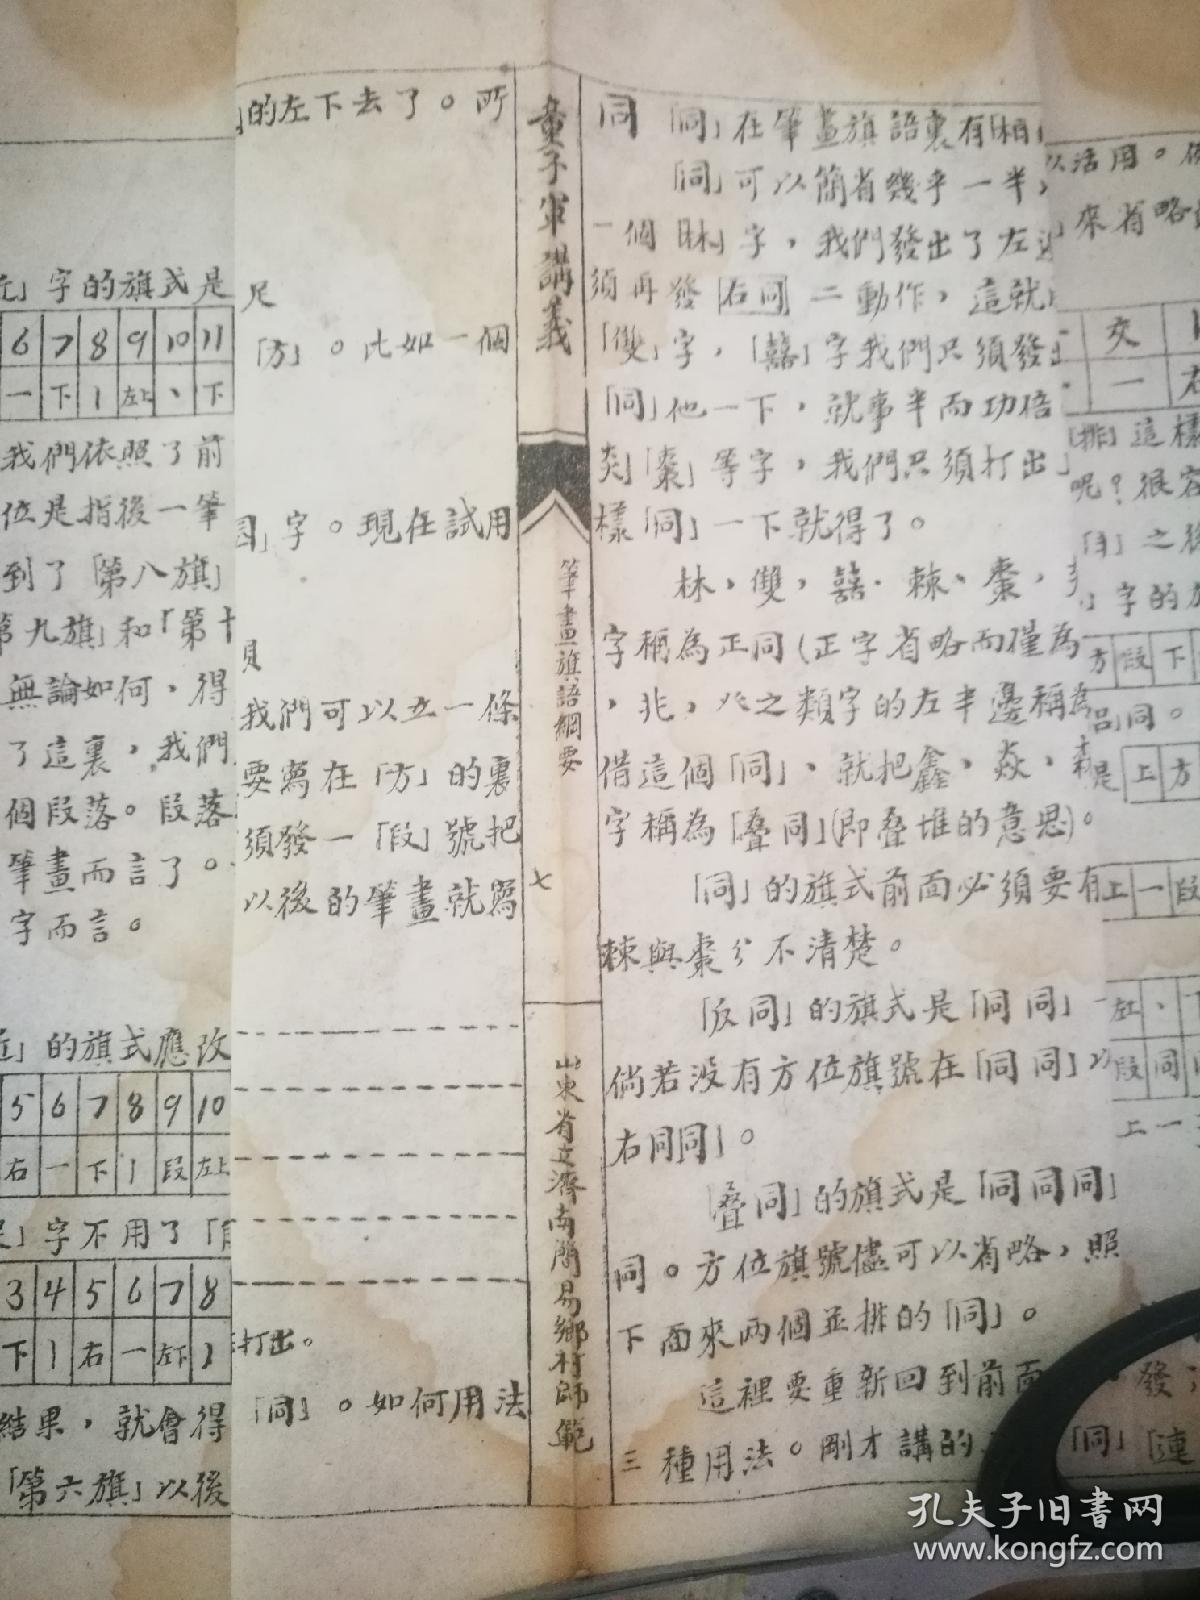 的左下去了。所
字的旗式是
6 7 8 9 10 11
一 下 丨 左上 、 下
我們依照了前
位是指後一筆
到了「第八旗」
第九旗」和「第十
無論如何，得
了這裏，我們
個段落。段落
筆畫而言了。
字而言。
」的旗式應改
5 6 7 8 9 10
右 一 下 丨 段 左上
」字不用了「
3 4 5 6 7 8
下 丨 右 一 左下
結果，就會得
「第六旗」以後
「方」。比如一個
」字。現在試用
我們可以立一條
要寫在「方」的裏
須發一「段」號把
以後的筆畫就寫
打出。
「同」。如何用法
童子軍講義
筆畫旗語綱要
七
山東省立濟南簡易鄉村師範
同 「同」在筆畫旗語裏有
「同」可以簡省幾乎一半，
一個「林」字，我們發出了左
須再發「右同」二動作，這就
「雙」字，「囍」字我們只須發
「同」他一下，就事半而功倍
「棗」等字，我們只須打出
樣「同」一下就得了。
林，雙，囍．棘、棗，
字稱為正同(正字省略而僅為
，兆，八之類字的左半邊稱為
借這個「同」、就把鑫，焱，森
字稱為「叠同」(即叠堆的意思)。
「同」的旗式前面必須要有
棘與棗分不清楚。
「反同」的旗式是「同同」
倘若没有方位旗號在「同同」
右同同」。
「叠同」的旗式是「同同同」
同。方位旗號儘可以省略，照
下面來兩個並排的「同」。
這裡要重新回到前面
三種用法。剛才講的
以活用。
來省略
交
一 右
「排」這樣
呢？很容
「目」之後
」字的旗
方 段 下
同。
是 上 方
上 一 段
段 同
上 一
發；
「同」「連
孔夫子旧书网
www.kongfz.com